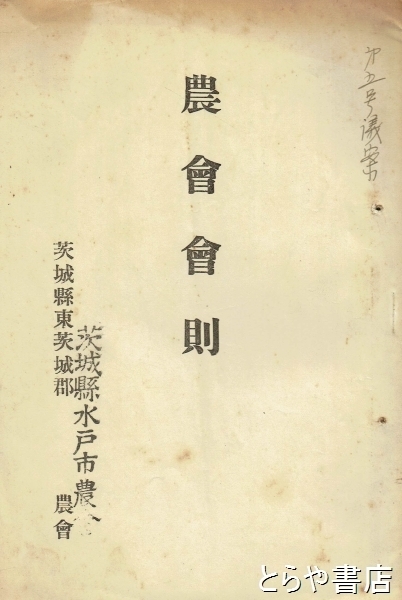 第五号議案
農會會則
茨城縣水戸市農會
茨城縣東茨城郡 農會
とらや書店